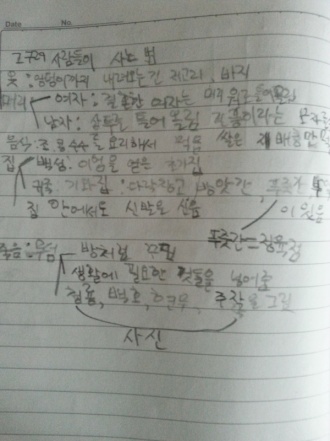 Date No.
고구려 사람들이 사는 법
옷 : 엉덩이까지 내려오는 긴 저고리, 바지
머리 여자 : 결혼한 여자는 머리
남자 : 상투를 틀어올림 절풍이라는 모자를
음식 : 콩 수수를 요리해서 먹음 쌀은 귀해
집 백성 : 이엉을 얹은 초가집
귀족 : 기와집 : 다락창고 방앗간, 푸줏간
집 안에서도 신발을 신음 이 있음
푸줏간=정육점
죽음 : 무덤 방처럼 꾸밈
생활에 필요한 것들을 넣어줌
청룡, 백호, 현무, 주작을 그림
사신